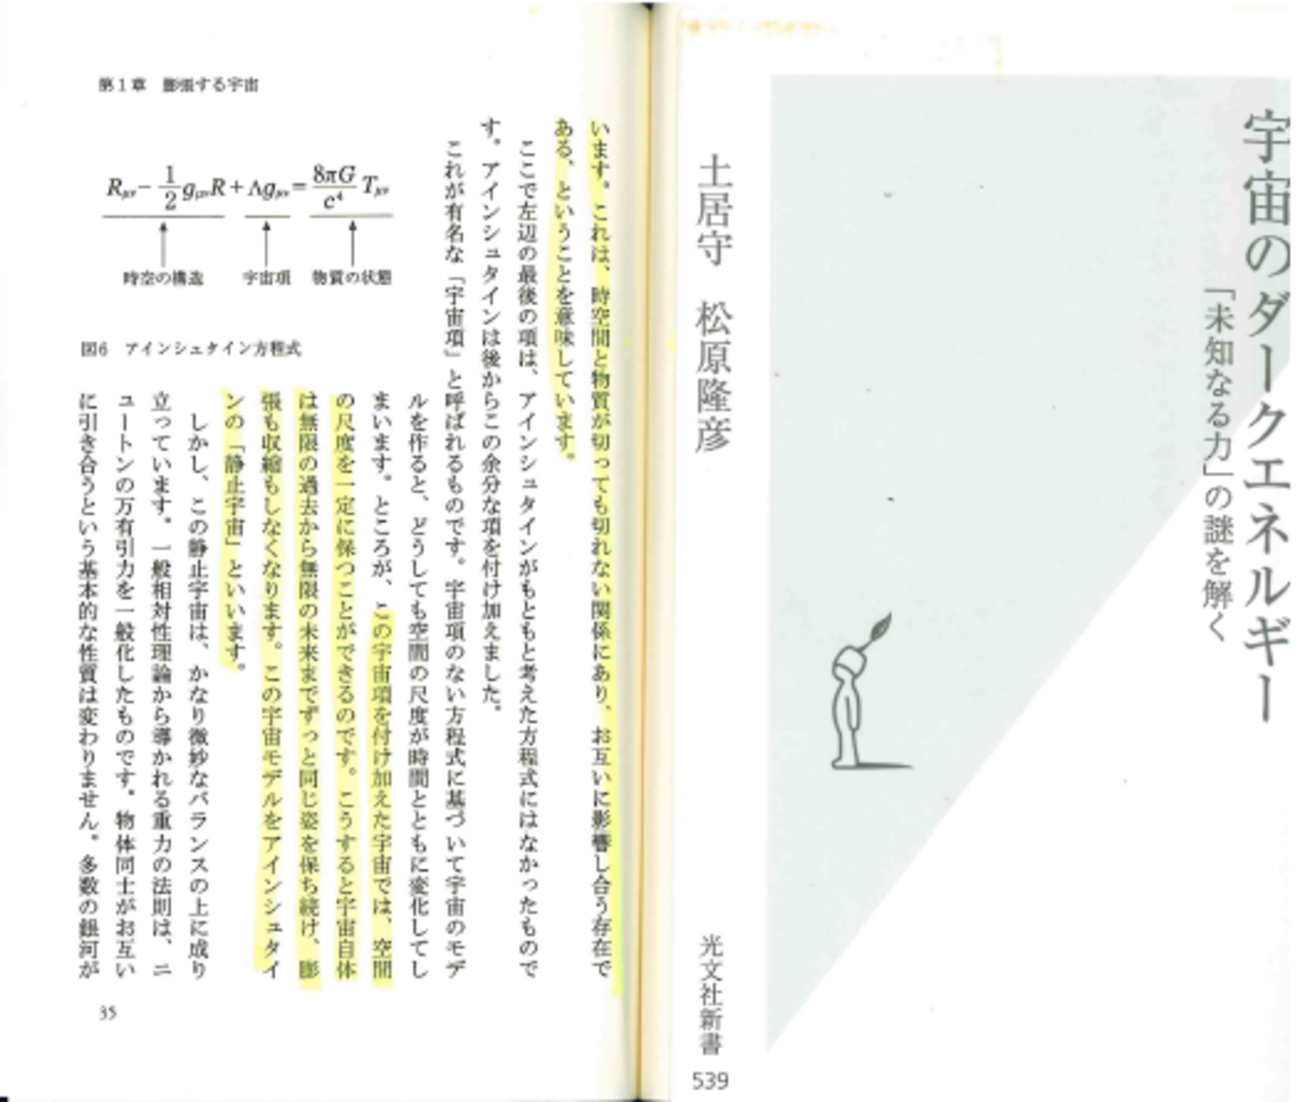 宇宙のダークエネルギー
「未知なる力」の謎を解く
土居守 松原隆彦
光文社新書
539
第1章 膨張する宇宙
います。これは、時空間と物質が切っても切れない関係にあり、お互いに影響し合う存在で
ある、ということを意味しています。
ここで左辺の最後の項は、アインシュタインがもともと考えた方程式にはなかったもので
す。アインシュタインは後からこの余分な項を付け加えました。
これが有名な「宇宙項」と呼ばれるものです。宇宙項のない方程式に基づいて宇宙のモデ
ルを作ると、どうしても空間の尺度が時間とともに変化してし
まいます。ところが、この宇宙項を付け加えた宇宙では、空間
の尺度を一定に保つことができるのです。こうすると宇宙自体
は無限の過去から無限の未来までずっと同じ姿を保ち続け、膨
張も収縮もしなくなります。この宇宙モデルをアインシュタイ
ンの「静止宇宙」といいます。
しかし、この静止宇宙は、かなり微妙なバランスの上に成り
立っています。一般相対性理論から導かれる重力の法則は、ニ
ュートンの万有引力を一般化したものです。物体同士がお互い
に引き合うという基本的な性質は変わりません。多数の銀河が
Rμν− 1/2 gμνR + Λgμν = 8πG/c⁴ Tμν
時空の構造 宇宙項 物質の状態
図6 アインシュタイン方程式
35